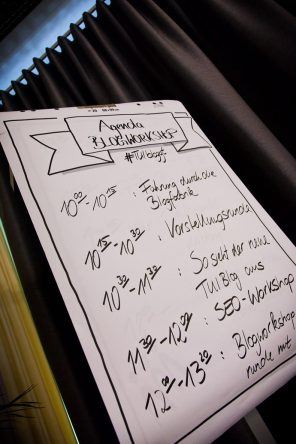 Agenda
BLOGWORKSHOP
#TUIblog
10:00-10:15 : Führung durch die
Blogfabrik
10:15-10:30 : Vorstellungsrunde
10:30-11:30 : So geht der neue
TUI Blog aus
11:30-12:00 : SEO-Workshop
12:00-13:20 : Blogworkshop
runde mit